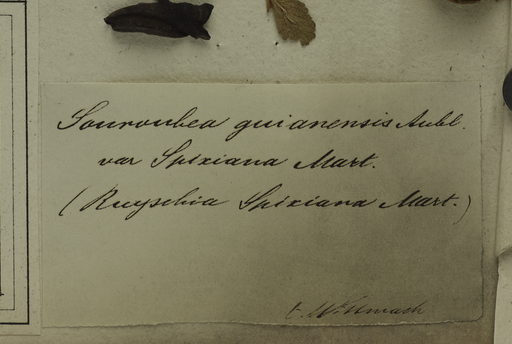 Souroubea guianensis Aubl.
var Spixiana Mart.
(Ruyschia Spixiana Mart.)
t.